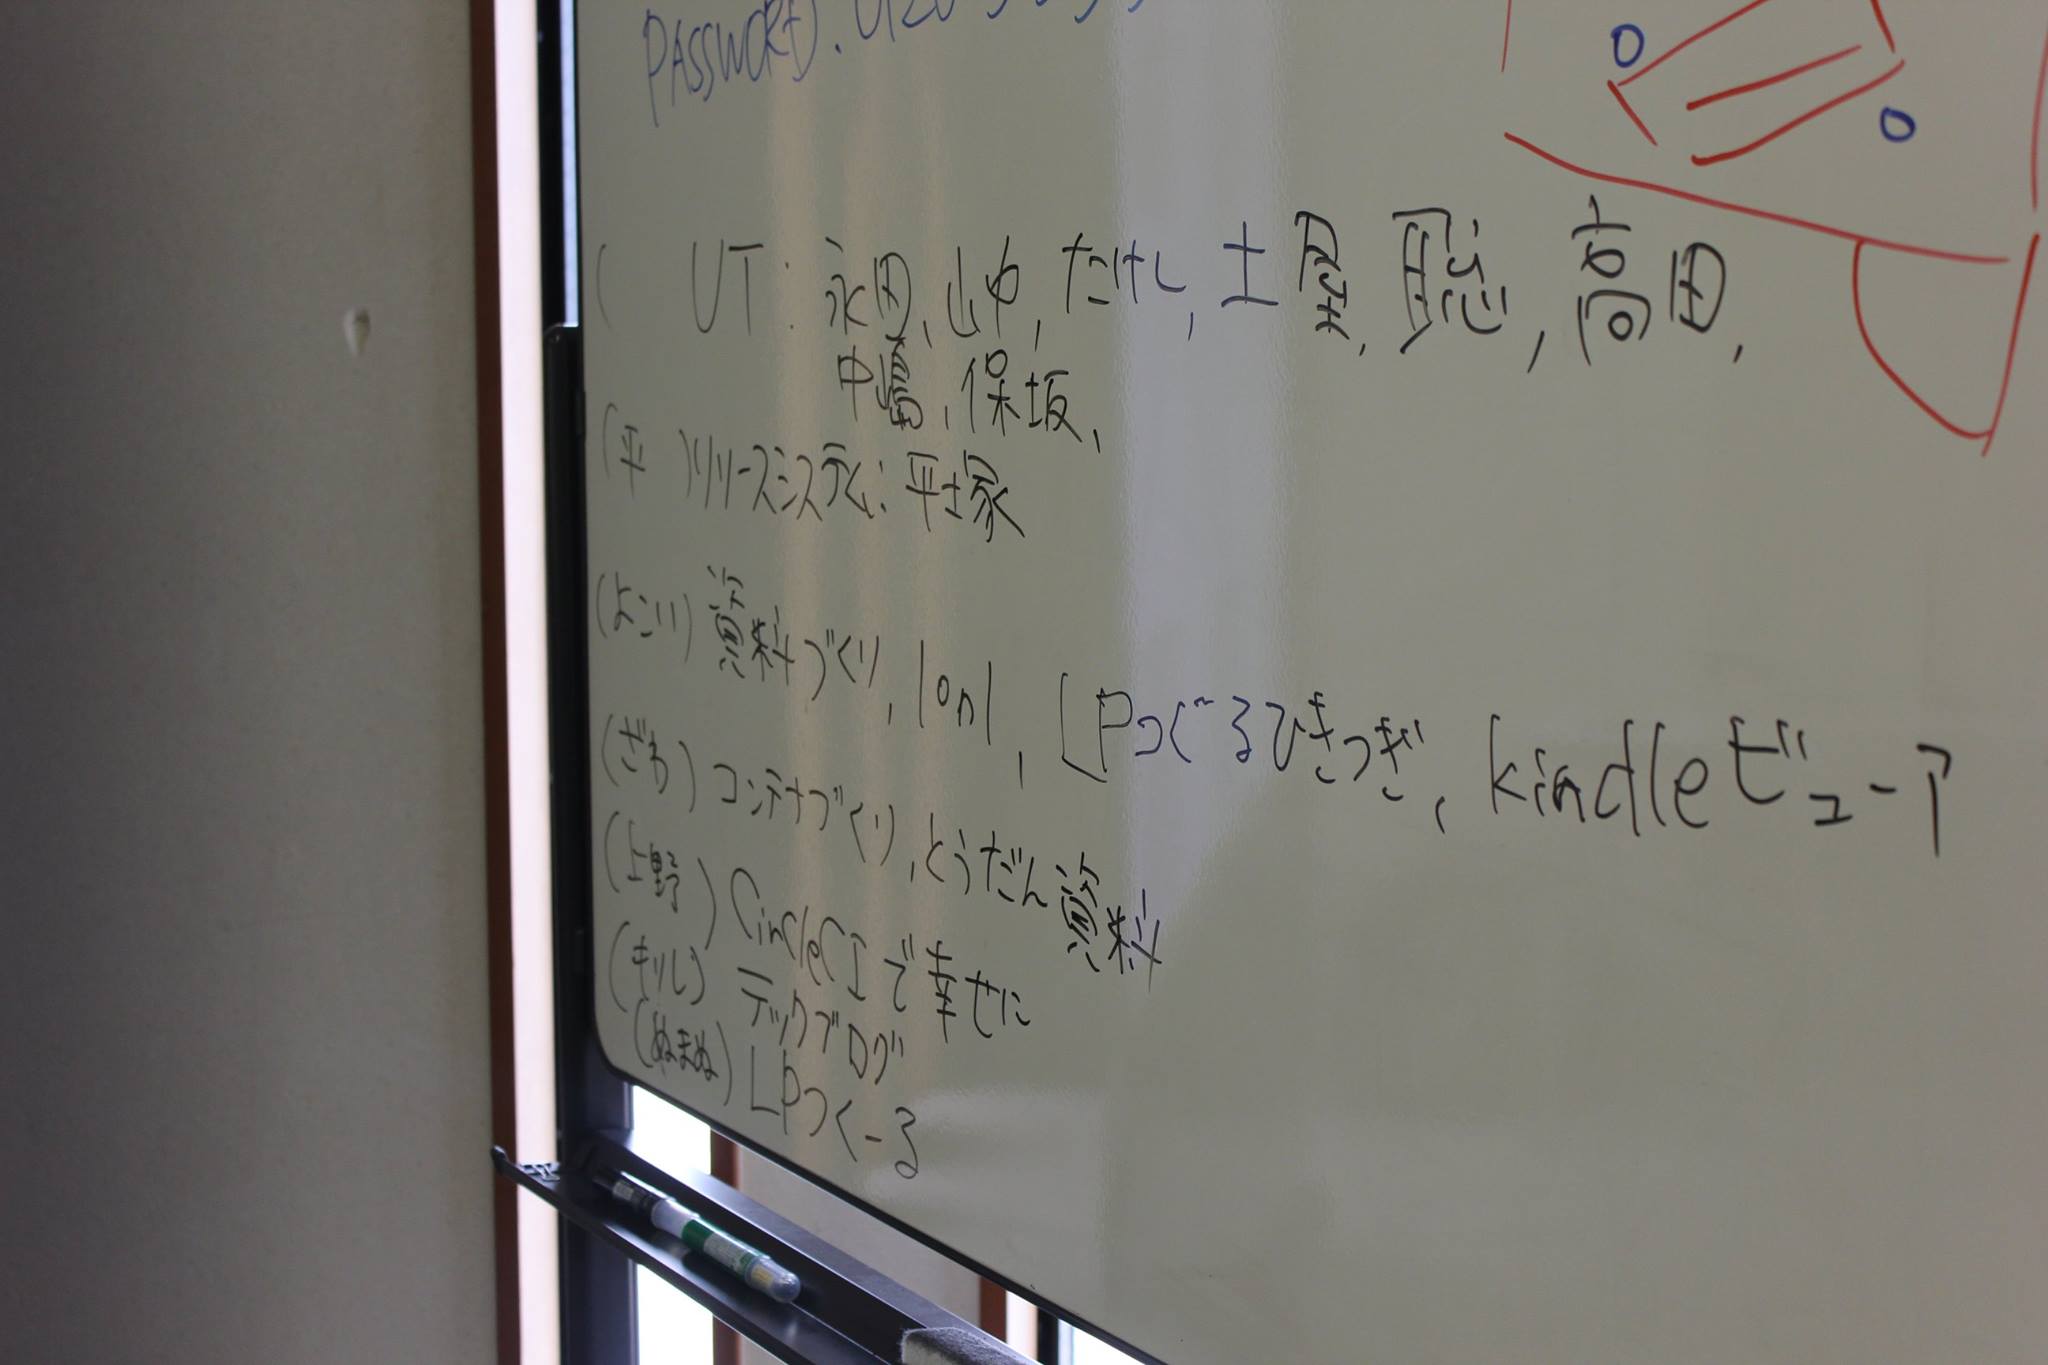 PASSWORD.
( UT: 永田、山中, たけし, 土屋, 聡, 高田,
中嶋、保坂、
(平 )リリースシステム: 平塚
(よこい) 資料づくり, 1on1, LPつくーるひきつぎ, kindleビューア
(ざわ) コンテナづくり, とうだん資料
(上野) CircleCIで幸せに
(きりし) テックブログ
(ぬまぬ) LPつくーる